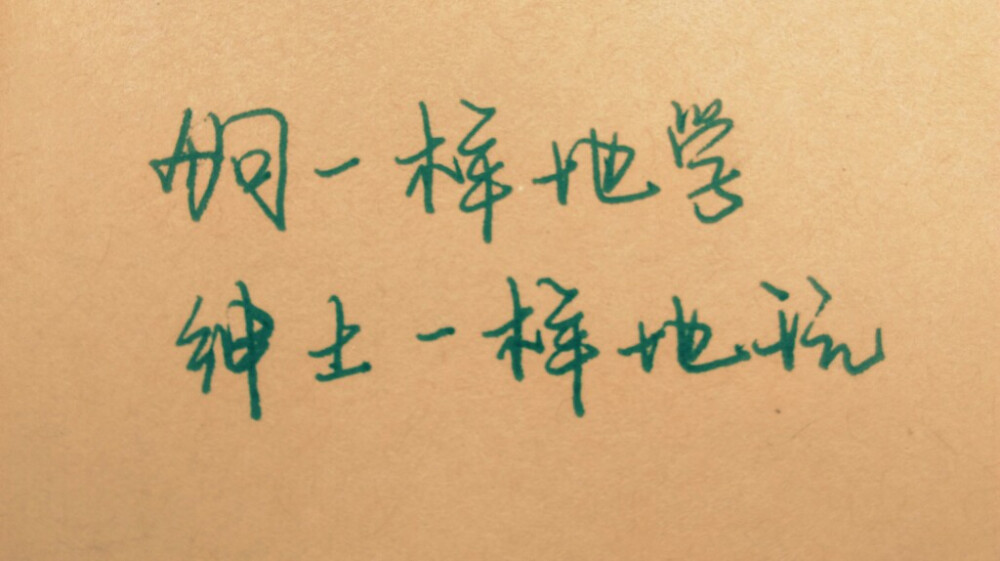 狗一样地学
绅士一样地玩